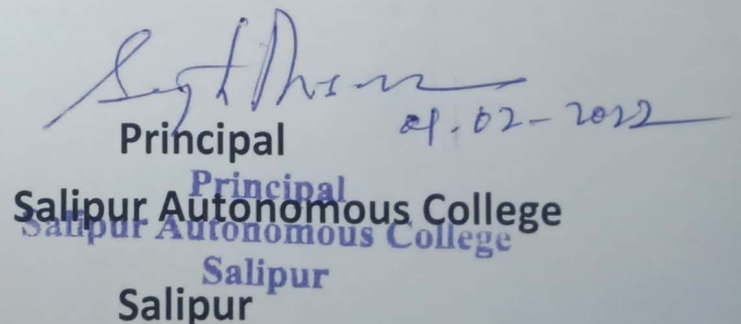 02-2022
Principal
Principal
Salipur Autonomous College
Salipur Autonomous College
Salipur
Salipur